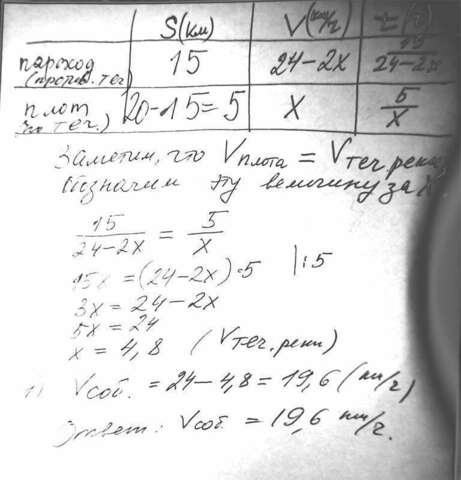 S(км) V(км/ч) t(ч)
пароход (против. теч) 15 24-2x 15/24-2x
плот (по теч.) 20-15=5 x 5/x
Заметим, что Vплота = Vтеч.реки,
обозначим эту величину за x.
15/24-2x = 5/x
15x = (24-2x)·5 |:5
3x = 24-2x
5x = 24
x = 4,8 (Vтеч.реки)
1) Vсоб. = 24-4,8 = 19,6 (км/ч)
Ответ: Vсоб. = 19,6 км/ч.